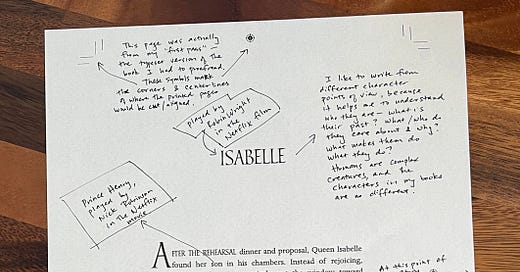 This page was actually
from my "first pass" —
the typeset version of the
book I had to proofread.
These symbols mark
the corners & centerlines
of where the printed pages
would be cut/aligned.
played by
Robin Wright
in the
Netflix film
ISABELLE
I like to write from
different character
points of view, because
it helps me to understand
who they are — what is
their past? What/who do
they care about & why?
What makes them do
what they do?
Humans are complex
creatures, and the
characters in my books
are no different.
Prince Henry,
played by
Nick Robinson
in the Netflix
movie
AFTER THE REHEARSAL dinner and proposal, Queen Isabelle
found her son in his chambers. Instead of rejoicing,
the window toward
At this point of